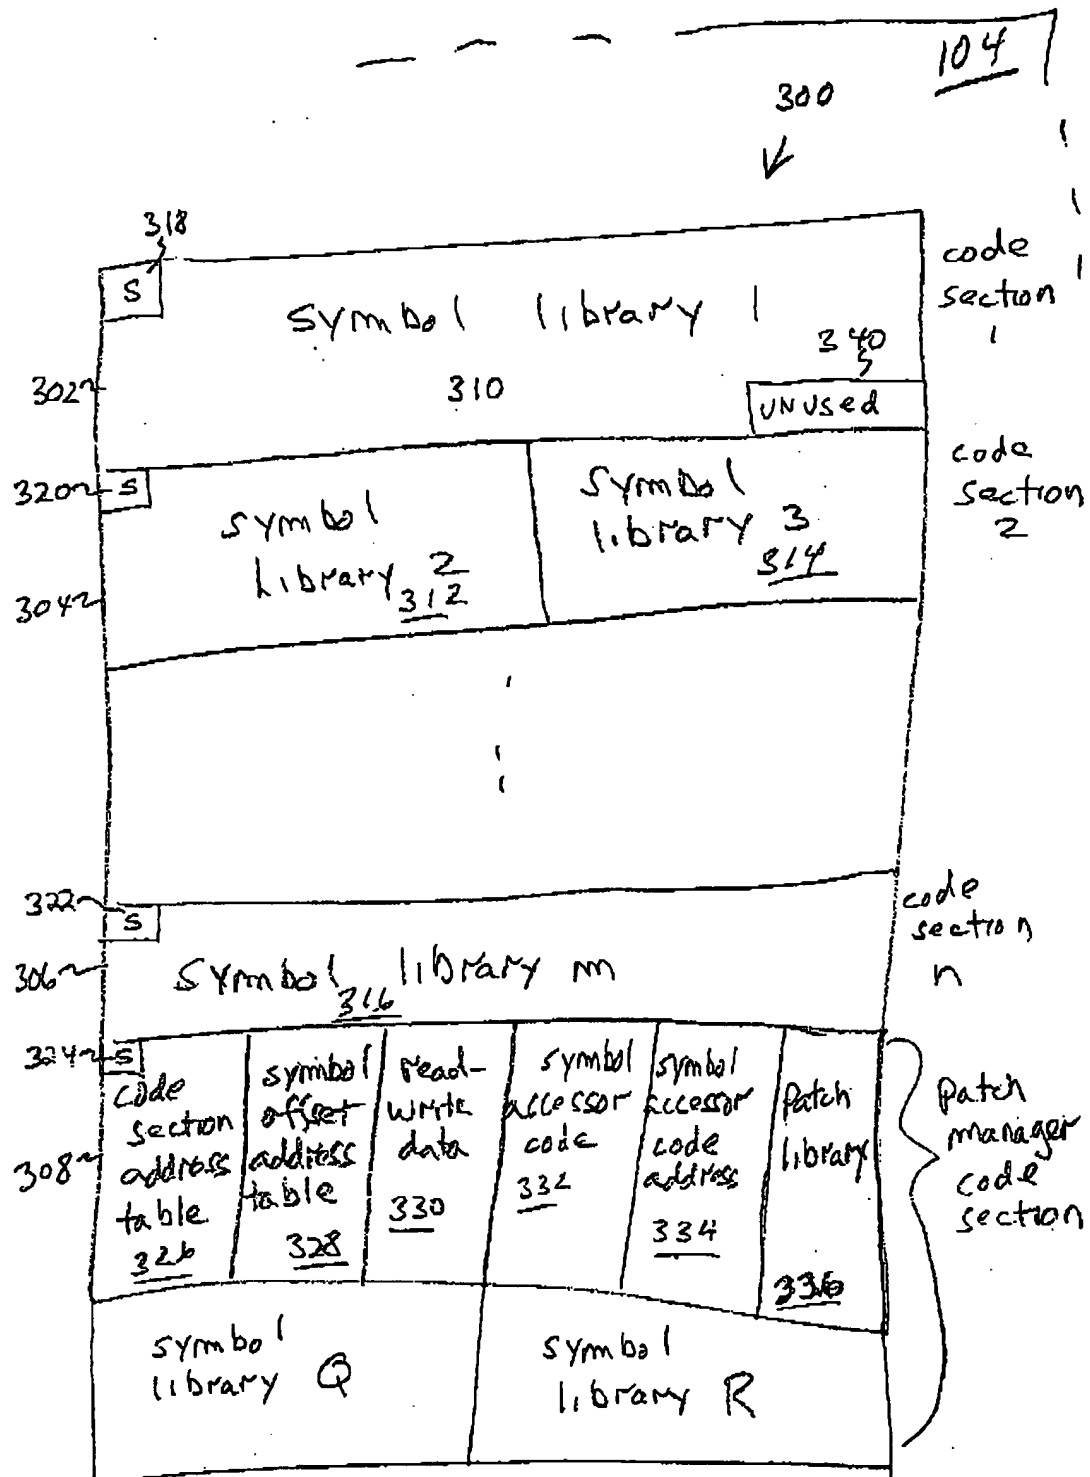 104
300
318
S
symbol library 1
code
section
1
340
302
310
UNUsed
320
S
symbol
library 2
312
symbol
library 3
314
code
section
2
304
322
S
code
section
n
306
symbol library m
316
324
S
code
section
address
table
326
symbol
offset
address
table
328
read-
write
data
330
symbol
accessor
code
332
symbol
accessor
code
address
334
Patch
library
336
308
Patch
manager
code
section
symbol
library Q
symbol
library R